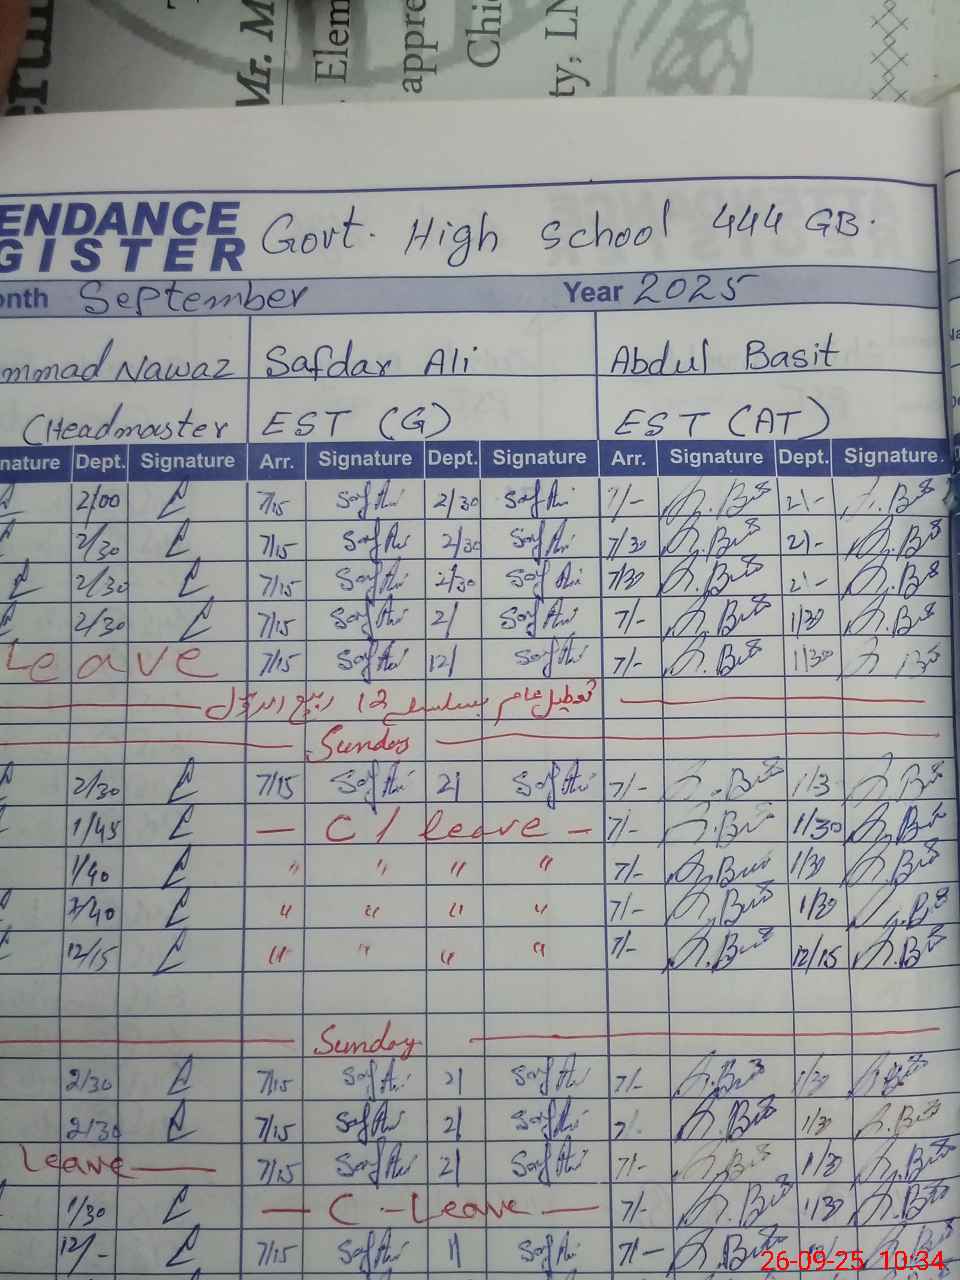 Mr. M
Elem
appre
Chi
ty, LN
ENDANCE
GISTER
Govt. High School 444 GB.
onth September Year 2025
mmad Nawaz Safdar Ali Abdul Basit
(Headmaster EST (G) EST (AT)
nature Dept. Signature Arr. Signature Dept. Signature Arr. Signature Dept. Signature
2/00 7/15 Saf Ali 2/30 Saf Ali 7/- A.Bas 2/- A.Bas
2/30 7/15 Saf Ali 2/30 Saf Ali 7/30 A.Bas 2/- A.Bas
2/30 7/15 Saf Ali 2/30 Saf Ali 7/30 A.Bas 2/- A.Bas
2/30 7/15 Saf Ali 2/ Saf Ali 7/- A.Bas 1/30 A.Bas
Leave 7/15 Saf Ali 12/ Saf Ali 7/- A.Bas 1/30 A.Bas
تعطیل عام بسلسلہ 12 ربیع الاول
Sunday
2/30 7/15 Saf Ali 2/ Saf Ali 7/- A.Bas 1/3 A.Bas
1/45 — C/leave — 7/- A.Bas 1/30 A.Bas
1/40 " " " " 7/- A.Bas 1/30 A.Bas
1/40 " " " " 7/- A.Bas 1/30 A.Bas
12/15 " " " " 7/- A.Bas 12/15 A.Bas
Sunday
2/30 7/15 Saf Ali 2/ Saf Ali 7/- A.Bas 1/30 A.Bas
2/30 7/15 Saf Ali 2/ Saf Ali 7/- A.Bas 1/30 A.Bas
Leave 7/15 Saf Ali 2/ Saf Ali 7/- A.Bas 1/30 A.Bas
1/30 — C-Leave — 7/- A.Bas 1/30 A.Bas
12/- 7/15 Saf Ali 1/ Saf Ali 7/- A.Bas
26-09-25 10:34